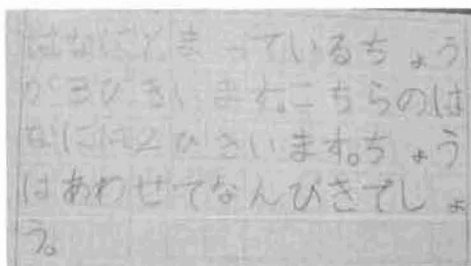 はなにとまっているちょう
が3びきいます。こちらのは
なには2ひきいます。ちょう
はあわせてなんびきでしょ
う。